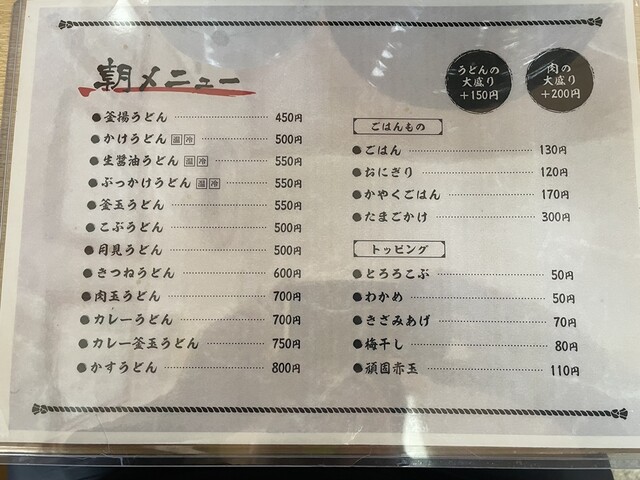 朝メニュー
うどんの
大盛り
+150円
肉の
大盛り
+200円
●釜揚うどん 450円
●かけうどん 温 冷 500円
●生醤油うどん 温 冷 550円
●ぶっかけうどん 温 冷 550円
●釜玉うどん 550円
●こぶうどん 500円
●月見うどん 500円
●きつねうどん 600円
●肉玉うどん 700円
●カレーうどん 700円
●カレー釜玉うどん 750円
●かすうどん 800円
ごはんもの
●ごはん 130円
●おにぎり 120円
●かやくごはん 170円
●たまごかけ 300円
トッピング
●とろろこぶ 50円
●わかめ 50円
●きざみあげ 70円
●梅干し 80円
●頑固赤玉 110円